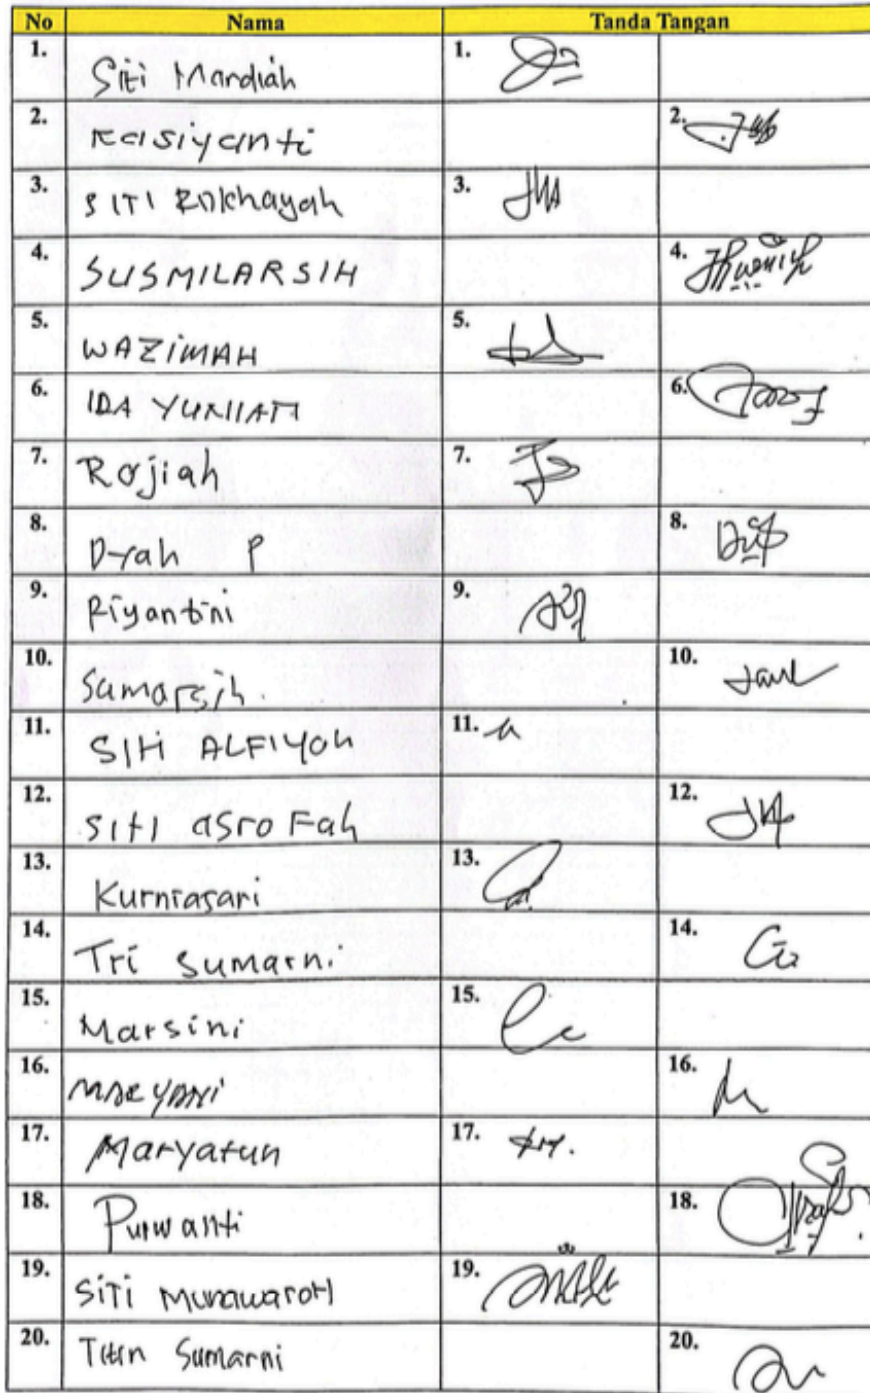 No Nama Tanda Tangan
1. Siti Mardiah 1.
2. Kasiyanti 2.
3. SITI Rokhayah 3.
4. SUSMILARSIH 4.
5. WAZIMAH 5.
6. IDA YUNIATI 6.
7. Rojiah 7.
8. Dyah P 8.
9. Riyantini 9.
10. Sumarsih. 10.
11. SITI ALFIYAH 11.
12. SITI asroFah 12.
13. Kurniasari 13.
14. Tri Sumarni 14.
15. Marsini 15.
16. MARYANI 16.
17. Maryatun 17.
18. Purwanti 18.
19. SiTi MunawaroH 19.
20. Titin Sumarni 20.